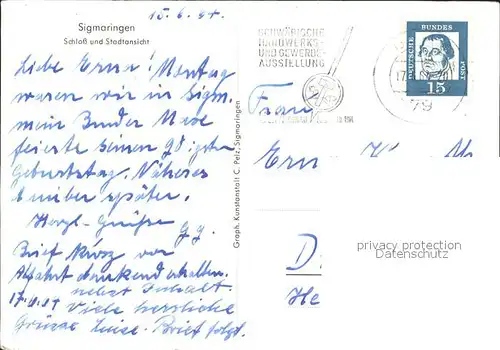 15.6.
Sigmaringen
Schloß und Stadtansicht
Liebe Erna! Montag
waren wir in Sigm.
mein Bruder
feierte seinen 90igsten
Geburtstag. Näheres
darüber später.
Herzl. Grüße
Brief kurz vor
Abfahrt dankend erhalten.
nebst Inhalt.
Viele herzliche
Grüsse Luise. Brief folgt.
Graph. Kunstanstalt C. Pelz, Sigmaringen
SCHWÄBISCHE
HANDWERKS-
UND GEWERBE-
AUSSTELLUNG
79
DEUTSCHE
BUNDES
POST
15
Frau
Ern
D
He
privacy protection
Datenschutz